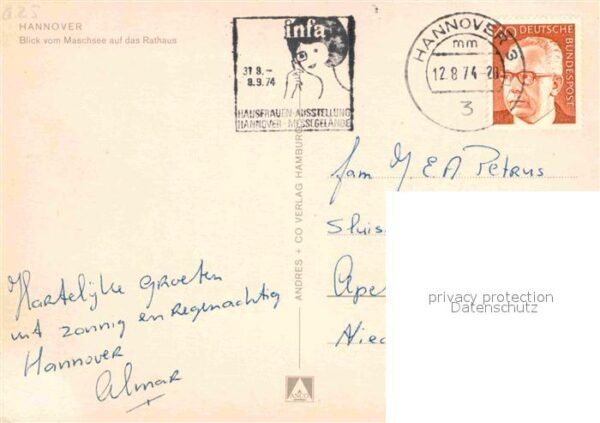 HANNOVER
Blick vom Maschsee auf das Rathaus
infa
31.8.–
8.9.74
HAUSFRAUEN-AUSSTELLUNG
HANNOVER-MESSEGELÄNDE
HANNOVER 3
mm
12.8.74-20
3
40 DEUTSCHE
BUNDESPOST
ANDRES + CO VERLAG HAMBURG
fam M.E.A Petrus
Sluis
Ape
Nied
privacy protection
Datenschutz
Hartelijke Groeten
uit zonnig en regenachtig
Hannover
Almar
ANCO